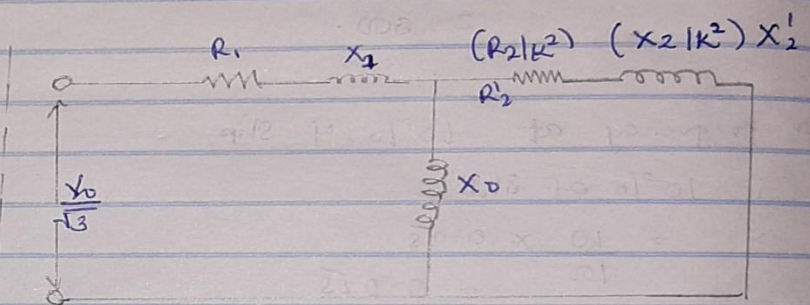 R₁ X₁ (R2/K²) (X2/K²) X₂'
R₂'
V₀/√3 X₀